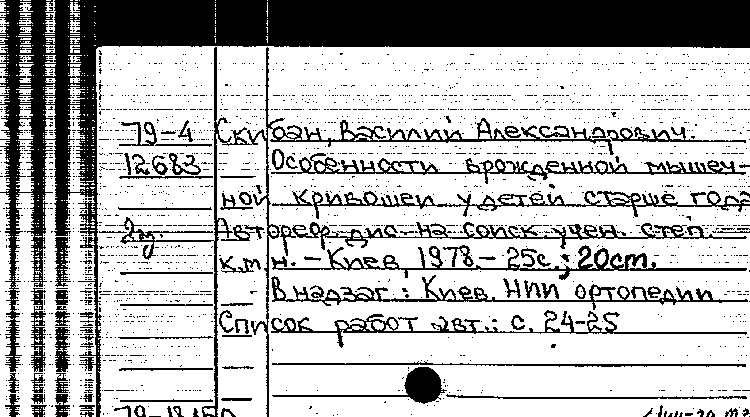 79-4 Скибан, Василий Александрович.
12683 Особенности врожденной мышеч-
ной кривошеи у детей старше года
2эг. Автореф. дис. на соиск. учен. степ.
к.м.н. - Киев, 1978. - 25с.; 20cm.
В надзаг.: Киев. НИИ ортопедии
Список работ авт.: с. 24-25